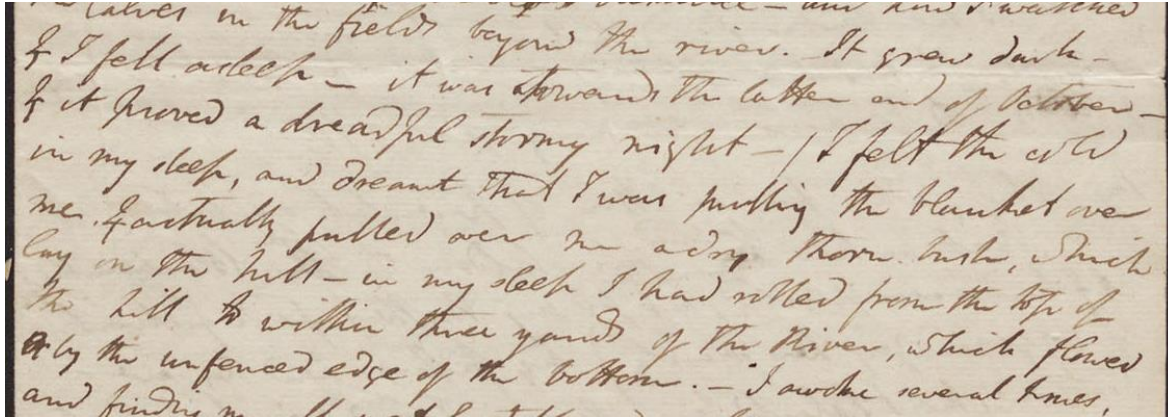 calves in the fields beyond the river. It grew dark -
& I fell asleep - it was towards the latter end of October -
& it proved a dreadful stormy night - / I felt the cold
in my sleep, and dreamt that I was pulling the blanket over
me, & actually pulled over me a dry thorn bush, which
lay on the hill - in my sleep I had rolled from the top of
the hill to within three yards of the River, which flowed
by the unfenced edge of the bottom. - I awoke several times,
and finding